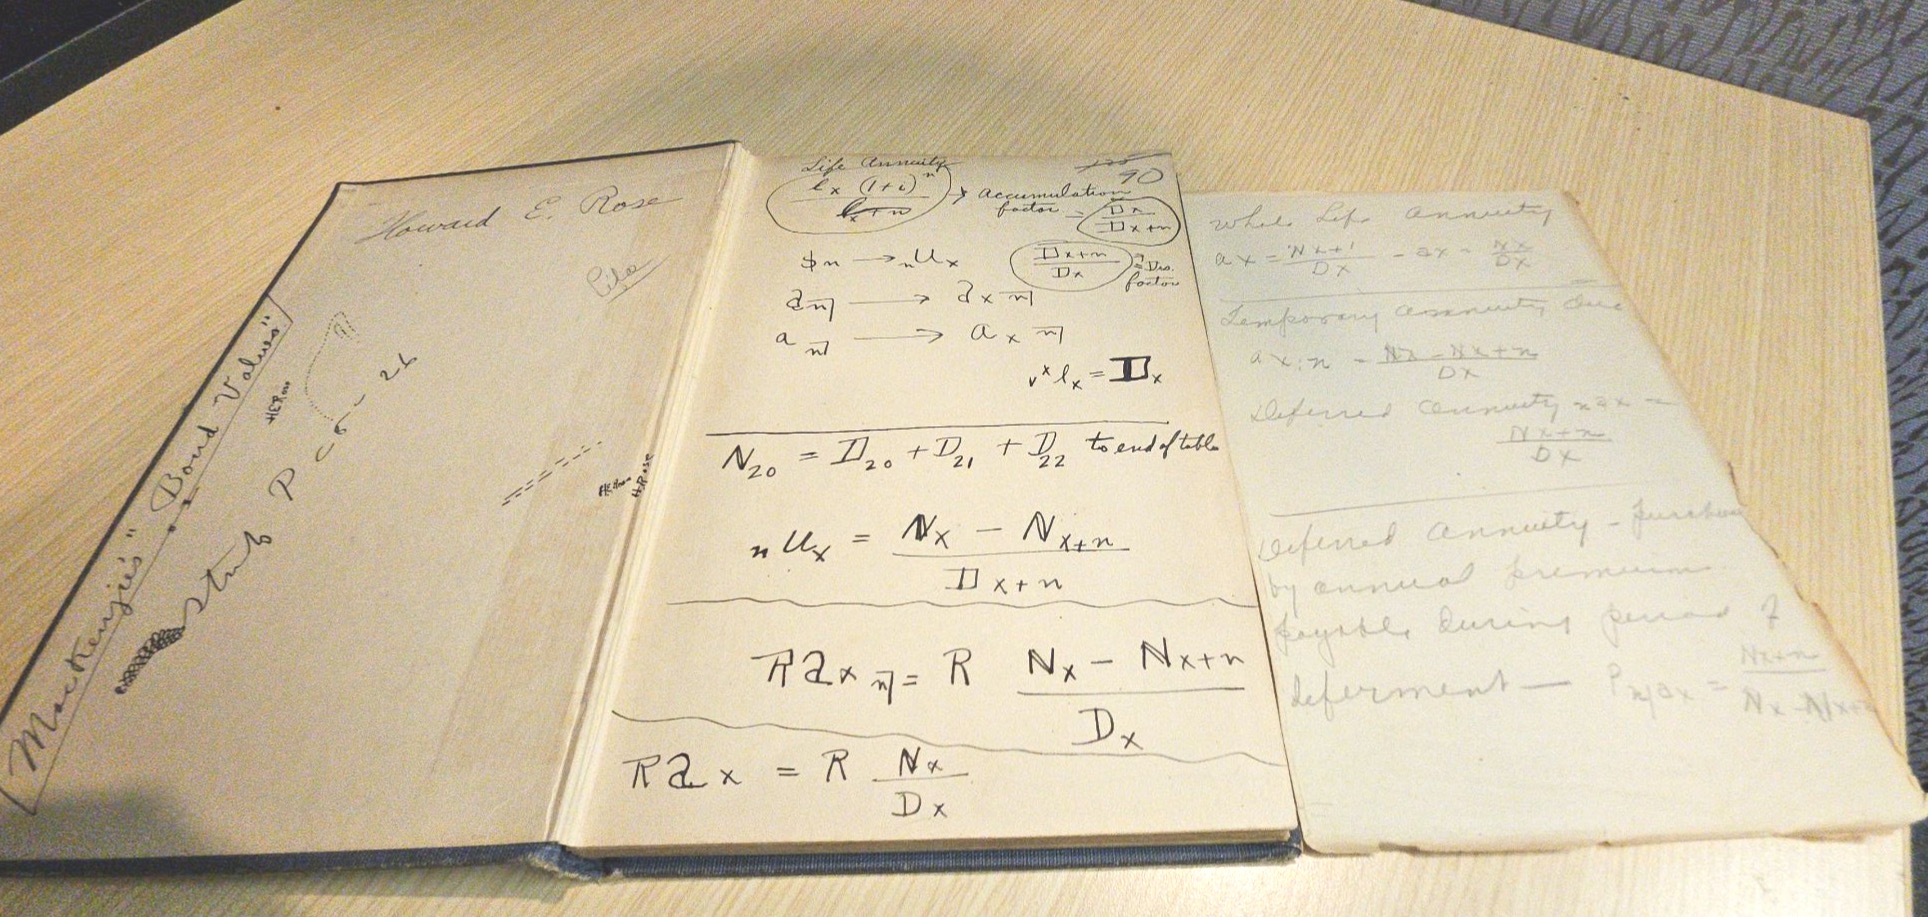 Howard E. Rose
Mackenzie's "Bond Values"
study P C-5-26
HERose
HERose
Life Annuity
lx (1+i)^n / lx+n → accumulation factor = Dx / Dx+n
90
$n → nUx
Dx+n / Dx = Dis. factor
än̅| → äx n̅|
an̅| → ax n̅|
v^x lx = Dx
N20 = D20 + D21 + D22 to end of table
nUx = Nx - Nx+n / Dx+n
Räx n̅| = R Nx - Nx+n / Dx
Räx = R Nx / Dx
Whole Life Annuity
ax = Nx+1 / Dx - äx = Nx / Dx
Temporary Annuity Due
ax:n = Nx - Nx+n / Dx
Deferred Annuity n äx =
Nx+n / Dx
Deferred Annuity - purchase
by annual premium
payable during period of
deferment — Pn|äx = Nx+n / Nx - Nx+n